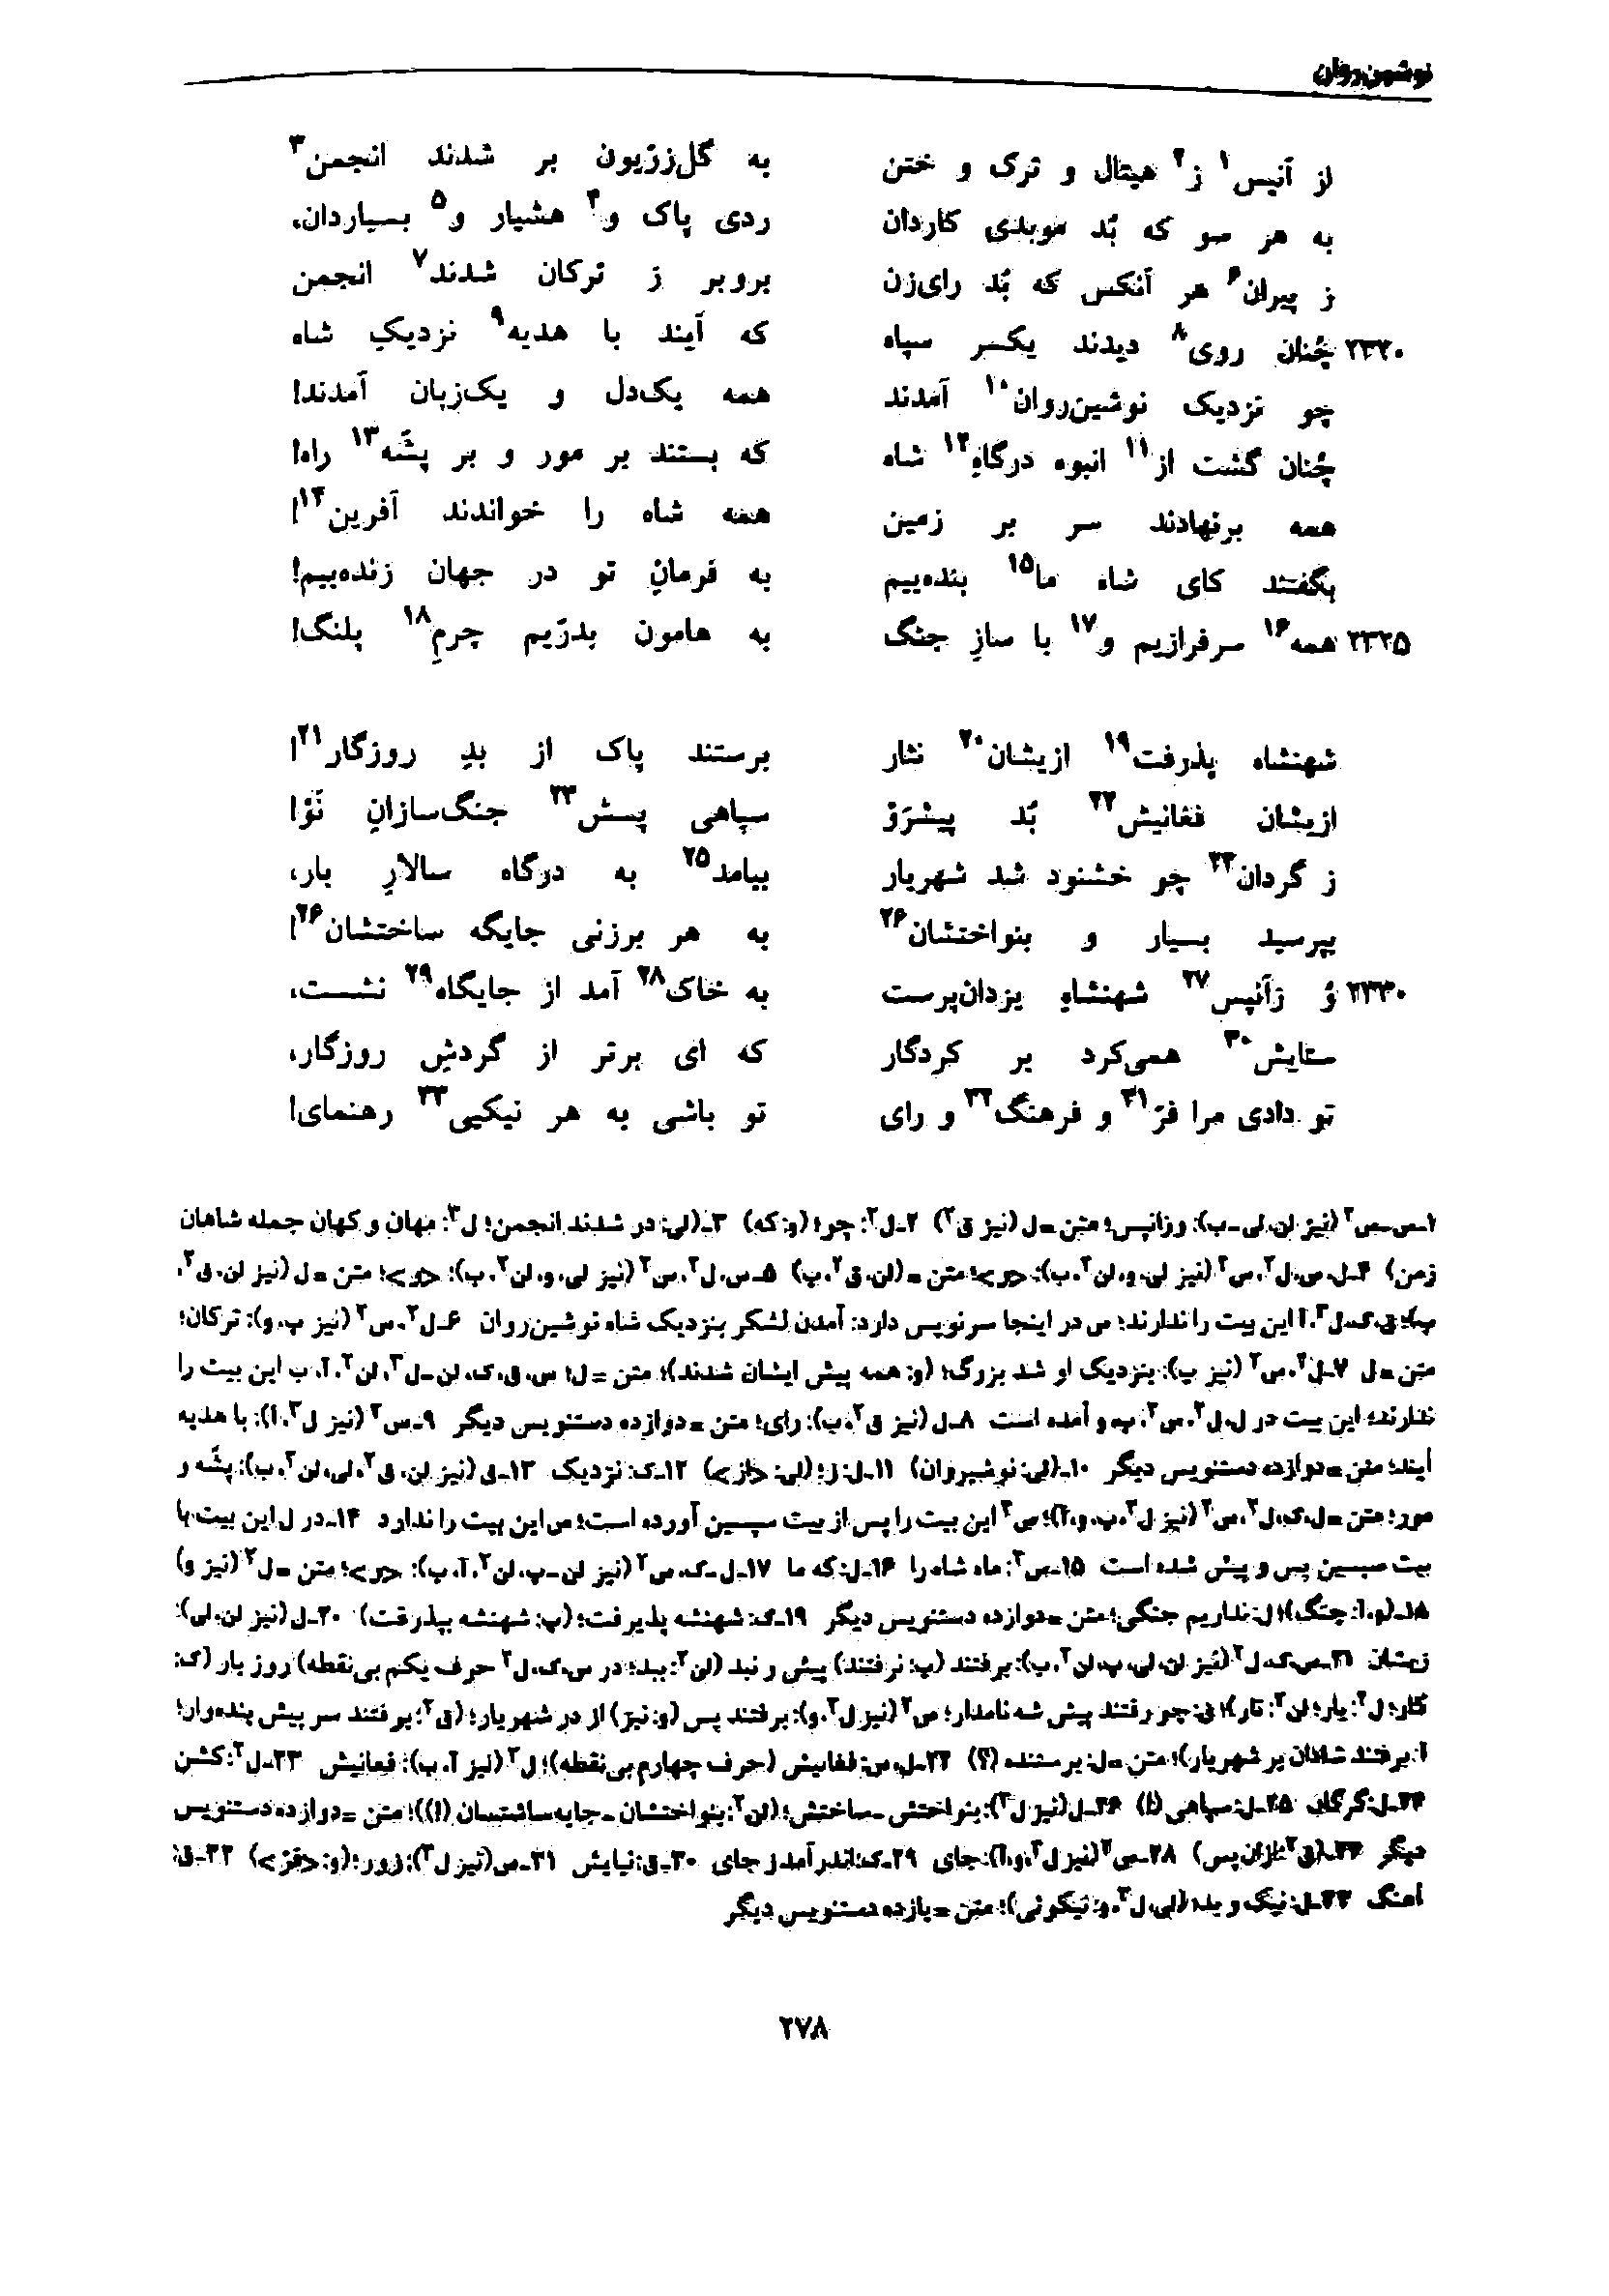 نوشین‌روان
از آنپس۱ ز۲ هیتال و ترک و ختن    به گل‌زرّیون بر شدند انجمن۳
به هر سو که بُد موبدی کاردان    ردی پاک و۴ هشیار و۵ بسیاردان،
ز پیران۶ هر آنکس که بُد رای‌زن    بروبر ز ترکان شدند۷ انجمن
۲۳۲۰ چُنان روی۸ دیدند یکسر سپاه    که آیند با هدیه۹ نزدیکِ شاه
چو نزدیک نوشین‌روان۱۰ آمدند    همه یک‌دل و یک‌زبان آمدند!
چُنان گشت از۱۱ انبوه درگاهِ۱۲ شاه    که بستند بر مور و بر پشّه۱۳ راه!
همه برنهادند سر بر زمین    همه شاه را خواندند آفرین۱۴!
بگفتند کای شاه ما۱۵ بنده‌ییم    به فرمانِ تو در جهان زنده‌ییم!
۲۳۲۵ همه۱۶ سرفرازیم و۱۷ با سازِ جنگ    به هامون بدرّیم چرمِ۱۸ پلنگ!
شهنشاه پذرفت۱۹ ازیشان۲۰ نثار    برستند پاک از بدِ روزگار۲۱!
ازیشان فغانیش۲۲ بُد پیشرَوْ    سپاهی پسش۲۳ جنگ‌سازانِ نَوْ!
ز گردان۲۴ چو خشنود شد شهریار    بیامد۲۵ به درگاه سالارِ بار،
بپرسید بسیار و بنواختشان۲۶    به هر برزنی جایگه ساختشان۲۶!
۲۳۳۰ وُ زآنپس۲۷ شهنشاهِ یزدان‌پرست    به خاک۲۸ آمد از جایگاه۲۹ نشست،
ستایش۳۰ همی‌کرد بر کردگار    که ای برتر از گردشِ روزگار،
تو دادی مرا فرّ۳۱ و فرهنگ۳۲ و رای    تو باشی به هر نیکیی۳۳ رهنمای!
۱ـ س ـ س۲ (نیز لن، لی ـ ب): وزانپس؛ متن = ل (نیز ق۲) ۲ـ ل۲: چو؛ (و: که) ۳ـ (لی: در شدند انجمن؛ ل۳: مهان و کهان جمله شاهان
زمن) ۴ـ ل، س، ل۲، س۲ (نیز لی، و، لن۲، ب): <و>؛ متن = (لن، ق۲، پ) ۵ـ س، ل۲، س۲ (نیز لی، و، لن۲، ب): <و>؛ متن = ل (نیز لن، ق۲،
پ)؛ ق، ک، ل۳، آ این بیت را ندارند؛ س در اینجا سرنویس دارد: آمدن لشکر بنزدیک شاه نوشین‌روان ۶ـ ل۲، س۲ (نیز پ، و): ترکان؛
متن = ل ۷ـ ل۲، س۲ (نیز پ): بنزدیک او شد بزرگ؛ (و: همه پیش ایشان شدند)؛ متن = ل؛ س، ق، ک، لن ـ ل۳، لن۲، آ، ب این بیت را
ندارند؛ این بیت در ل، ل۲، س۲، پ، و آمده است ۸ـ ل (نیز ق۲، ب): رای؛ متن = دوازده دستنویس دیگر ۹ـ س۲ (نیز ل۳، آ): با هدیه
آیند؛ متن = دوازده دستنویس دیگر ۱۰ـ (لی: نوشیروان) ۱۱ـ ل: ز؛ (لی: <از>) ۱۲ـ ک: نزدیک ۱۳ـ ق (نیز لن، ق۲، لی، لن۲، ب): پشّه و
مور؛ متن = ل، ک، ل۲، س۲ (نیز ل۳، پ، و، آ)؛ س۲ این بیت را پس از بیت سپسین آورده است؛ س این بیت را ندارد ۱۴ـ در ل این بیت با
بیت سپسین پس و پیش شده است ۱۵ـ س۲: ماه شاه را ۱۶ـ ل: که ما ۱۷ـ ل ـ ک، س۲ (نیز لن ـ پ، لن۲، آ، ب): <و>؛ متن = ل۲ (نیز و)
۱۸ـ (و، آ: جنگ)؛ ل: نداریم جنگی؛ متن = دوازده دستنویس دیگر ۱۹ـ ک: شهنشه پذیرفت؛ (پ: شهنشه بپذرفت) ۲۰ـ ل (نیز لن، لی):
زیشان ۲۱ـ س، ک، ل۲ (نیز لن، لی، پ، لن۲، ب): برفتند (پ: نرفتند) پیش و نبد (لن۲: ببد؛ در س، ک، ل۲ حرف یکم بی‌نقطه) روز بار (ک:
کار؛ ل۲: یار؛ لن۲: تار)؛ ق: چو رفتند پیش شه نامدار؛ س۲ (نیز ل۳، و): برفتند پس (و: نیز) از در شهریار؛ (ق۲: برفتند سر پیش بنده‌وار؛
آ: برفتند شادان بر شهریار)؛ متن = ل: برستنده (؟) ۲۲ـ ل، س: فغانیش (حرف چهارم بی‌نقطه)؛ ل۲ (نیز آ، ب): فعانیش ۲۳ـ ل۲: کشن
۲۴ـ ل: گرگان ۲۵ـ ل: سپاهی (!) ۲۶ـ ل (نیز ل۳): بنواختش ـ ساختش؛ (لن۲: بنواختشان ـ جایه ساشتسان (!))؛ متن = دوازده دستنویس
دیگر ۲۷ـ (ق۲: ازان پس) ۲۸ـ س۲ (نیز ل۳، و، آ): جای ۲۹ـ ک: اندر آمد ز جای ۳۰ـ ق: نیایش ۳۱ـ س (نیز ل۳): زور؛ (و: <فرّ>) ۳۲ـ ق:
آهنگ ۳۳ـ ل: نیک و بد؛ (لی، ل۳، و: نیکوئی)؛ متن = یازده دستنویس دیگر
۲۷۸